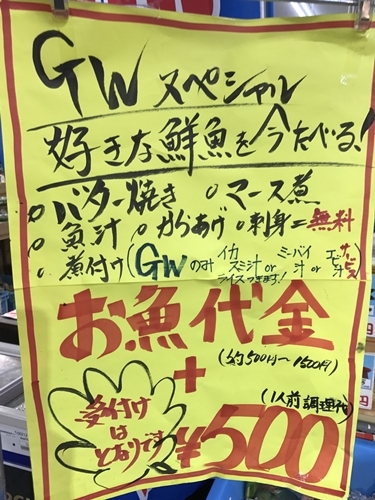 GWスペシャル
好きな鮮魚を今たべる!
○バター焼き ○マース煮
○魚汁 ○からあげ ○刺身=無料
○煮付け(GWのみ イカスミ汁 or ミーバイ汁 or エビ汁 サービス
ライスつきます!)
お魚代金
(約500円〜1500円)
+
(1人前調理代)
¥500
受付け
は
となりです